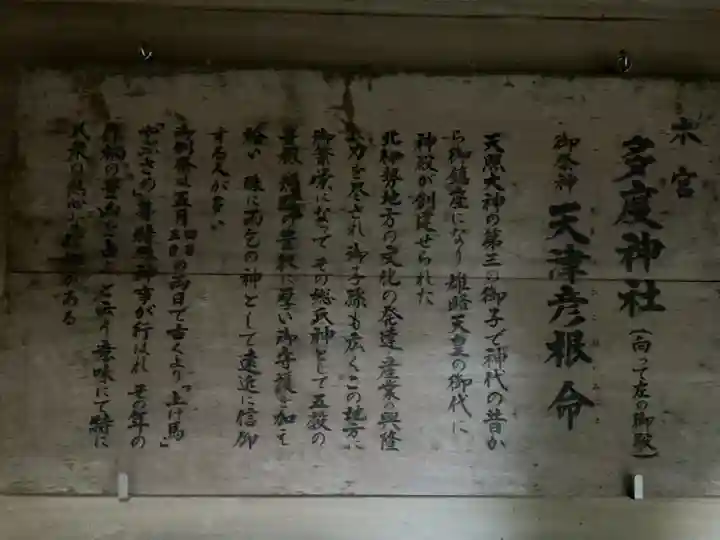 本宮
多度神社(向って左の御殿)
御祭神 天津彦根命
天照大神の第三の御子で神代の昔か
ら御鎮座になり 雄略天皇の御代に
神殿が創建せられた
北伊勢地方の文化の発達 産業の興隆
に力を尽され 御子孫も広くこの地方に
御繁栄になって その総氏神として五穀の
豊穣 に厚い御守護を加え
給い 殊に雨乞の神として遠近に信仰
する人が多い
五月 四日 五日 の両日で古くより「上げ馬」
「やぶさめ」等 神事が行はれ その年の
作柄の豊凶を占う と云う意味にて特に
がある